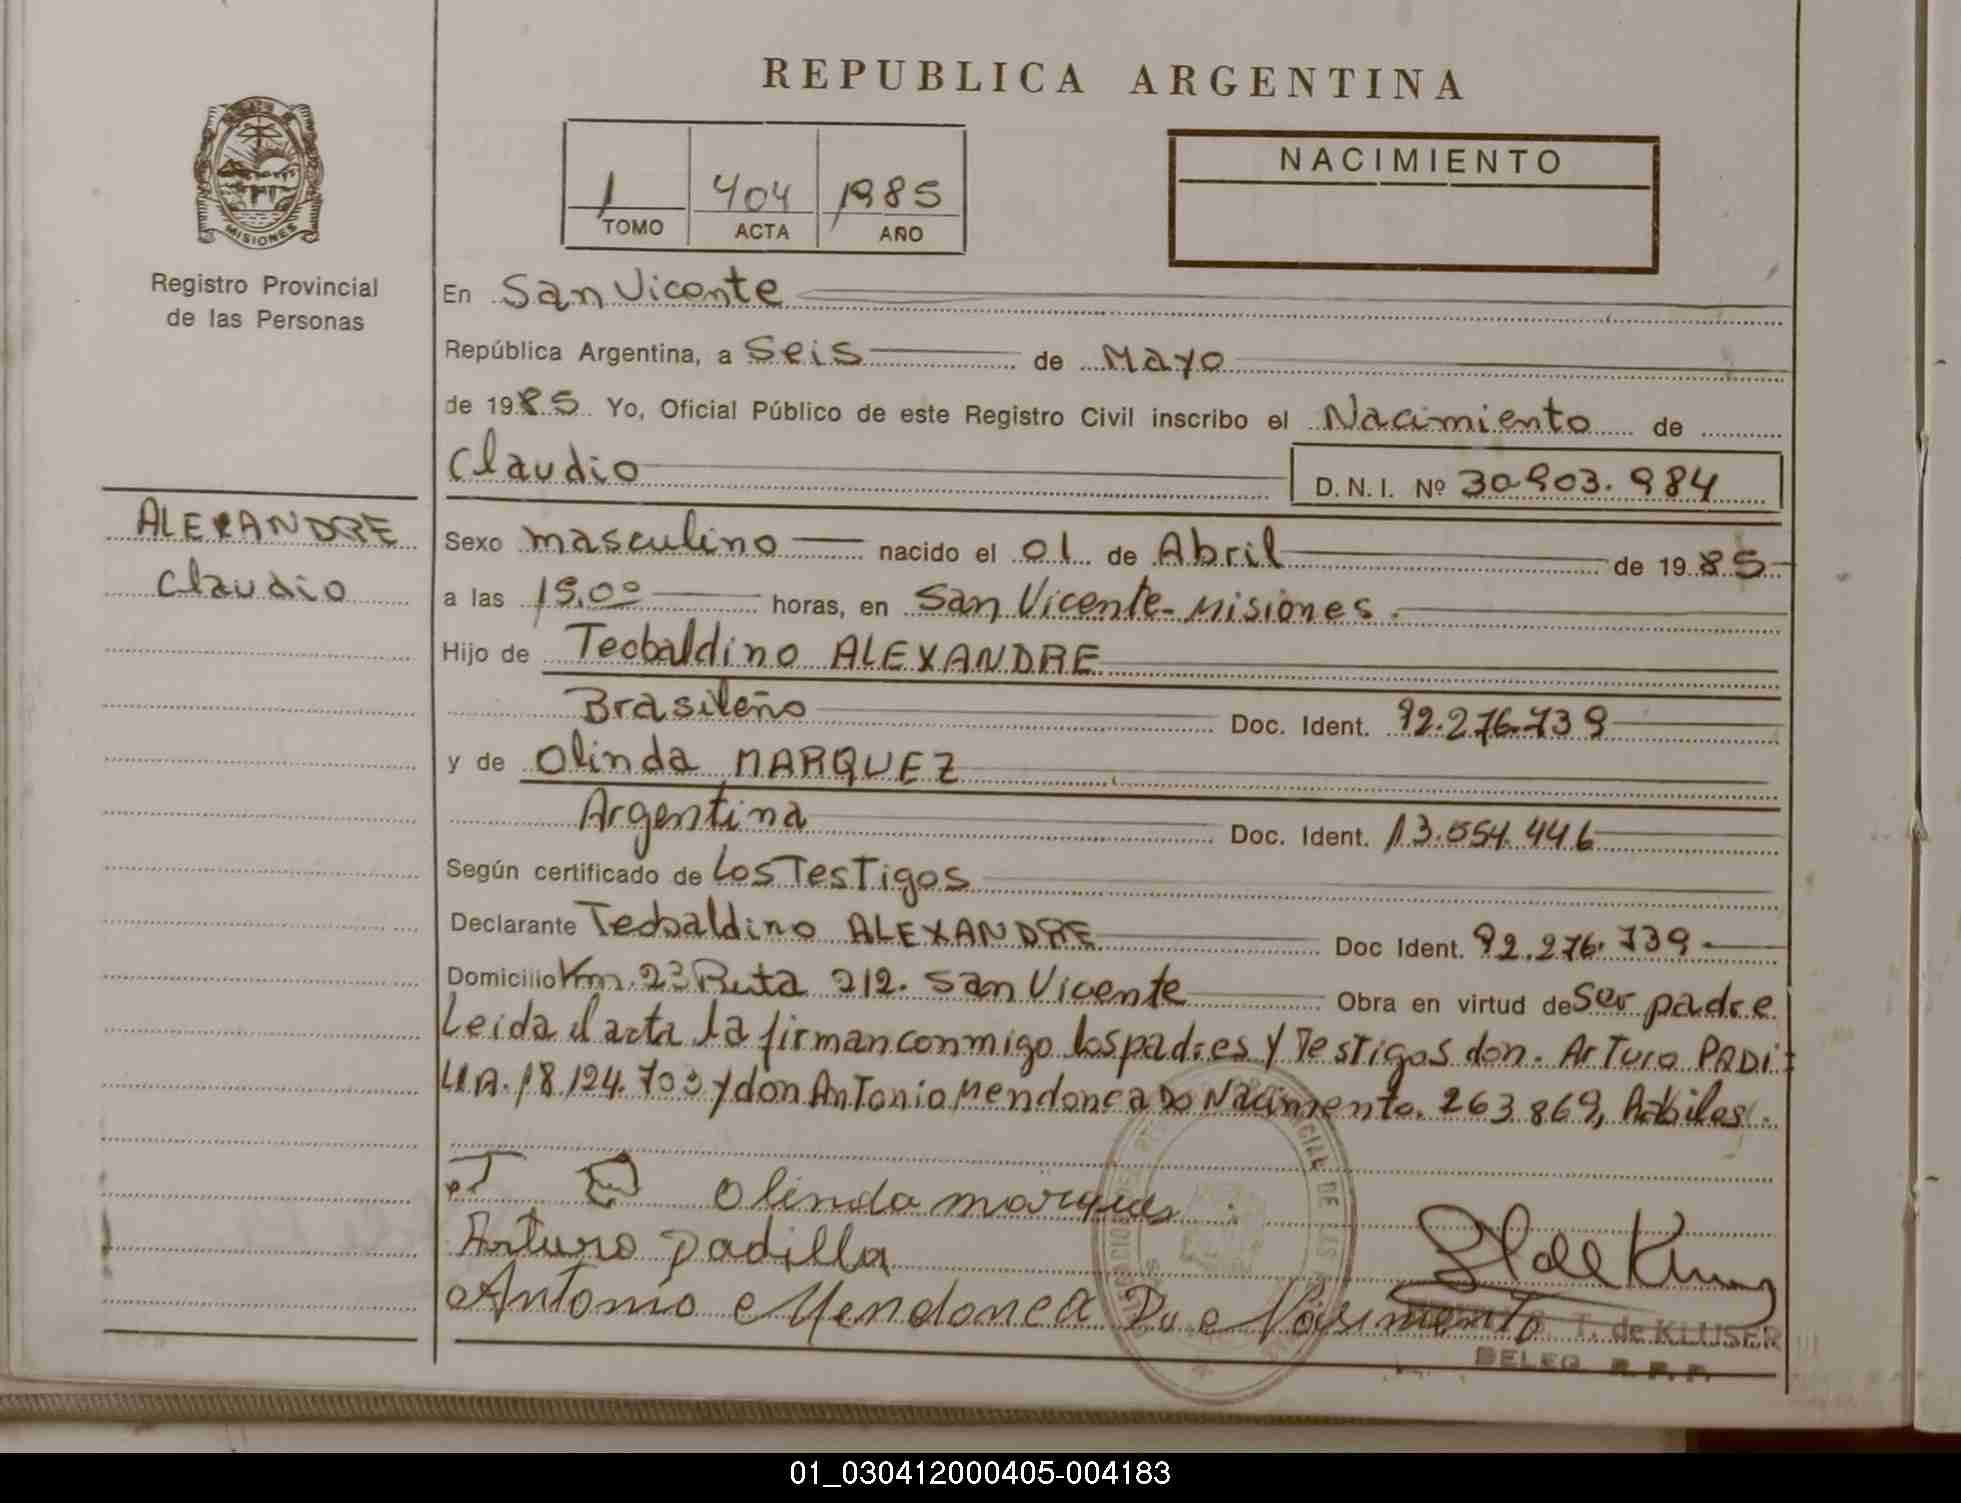 REPUBLICA ARGENTINA
MISIONES
Registro Provincial
de las Personas
1 404 1985
TOMO ACTA AÑO
NACIMIENTO
En San Vicente
República Argentina, a Seis de Mayo
de 1985 Yo, Oficial Público de este Registro Civil inscribo el Nacimiento de
Claudio D.N.I. Nº 30.903.984
ALEXANDRE
Claudio
Sexo masculino nacido el 01 de Abril de 1985
a las 15,00 horas, en San Vicente-Misiones.
Hijo de Teobaldino ALEXANDRE
Brasileño Doc. Ident. 92.276.739
y de Olinda MARQUEZ
Argentina Doc. Ident. 13.554.446
Según certificado de Los Testigos
Declarante Teobaldino ALEXANDRE Doc Ident. 92.276.739
Domicilio Km. 23 Ruta 212. San Vicente Obra en virtud de Ser padre
Leida el acta la firman conmigo los padres y Testigos don. Arturo PADI:
LLA. 18.124.703 y don Antonio Mendonca Do Nacimento. 263.869, Habiles.
Olinda marques
Arturo Padilla
Antonio Mendonca Du Nasimento
T. de KLUSER
DELEG. R. P. P.
01_030412000405-004183